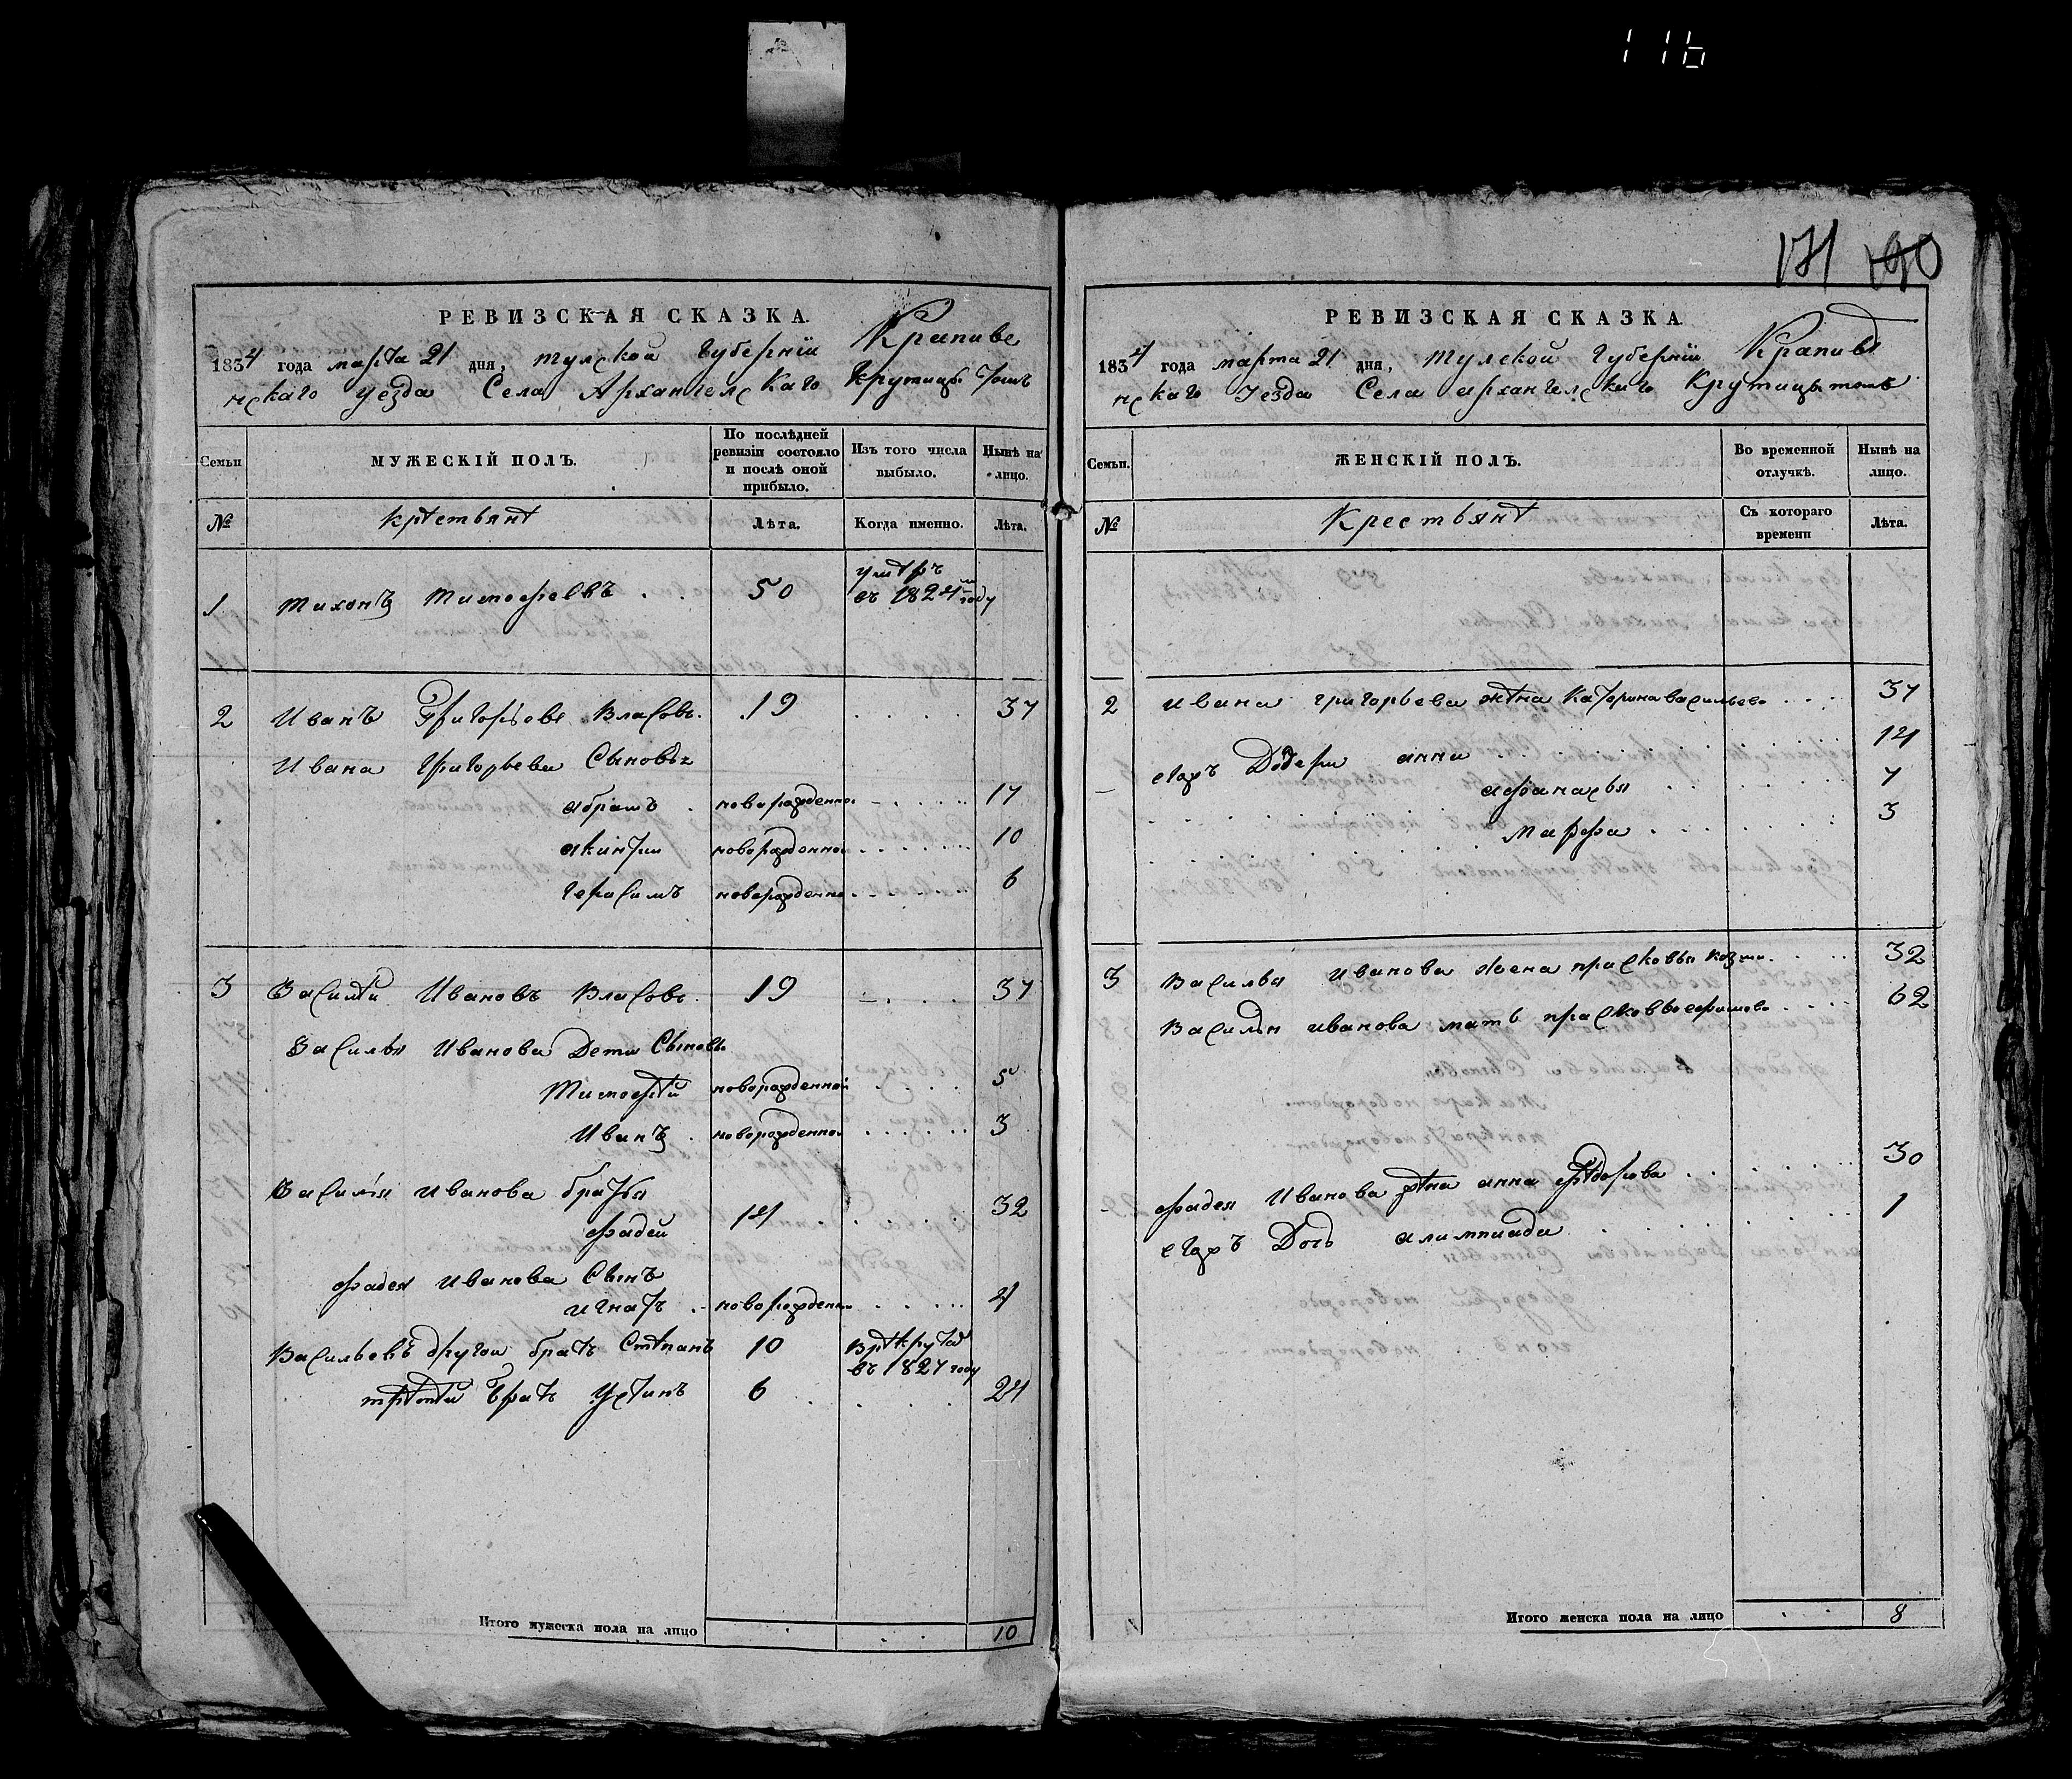 116
171 190
РЕВИЗСКАЯ СКАЗКА.
1834 года марта 21 дня, тулской губернии Крапиве
нскаго уезда Села Архангелскаго Крутицы тошъ
Семьи
МУЖЕСКІЙ ПОЛЪ.
По послѣдней ревизіи состояло и послѣ оной прибыло.
Изъ того числа выбыло.
Нынѣ на лицо.
№
крестьянѣ
Лѣта.
Когда именно.
Лѣта.
1 тихонъ тимофеевъ 50 умеръ въ 1824м году
2 Иванъ Григорьевъ Власовъ 19 37
Ивана григорьева Сыновья
абрамъ новорожденной 17
акинфий новорожденной 10
герасимъ новорожденной 6
3 Василий Ивановъ Власовъ 19 37
Василья Иванова Дети Сыновья
Тимофей новорожденной 5
Иванъ новорожденной 3
Василья иванова братья
фадей 14 32
фадея иванова Сынъ
игнатъ новорожденной 4
Васильевъ другой братъ Степанъ 10 Врекруты въ 1827 году
третий братъ Устинъ 6 24
Итого мужеска пола на лицо 10
РЕВИЗСКАЯ СКАЗКА
1834 года марта 21 дня, тулской губернии Крапивѣ
нскаго уезда Села архангелскаго Крутицы тошъ
Семьи.
ЖЕНСКІЙ ПОЛЪ.
Во временной отлучкѣ.
Нынѣ на лицо.
№
Крестьянѣ
Съ котораго времени
Лѣта.
2 ивана григорьева жена Катерина васильева 37
егоръ Дочери анна 14
афанасья 7
марфа 3
3 Василья иванова жена прасковья козми 32
Василья иванова мать прасковья ефимова 62
фадея Иванова жена анна федорова 30
егоръ Дочь алимпиада 1
Итого женска пола на лицо 8